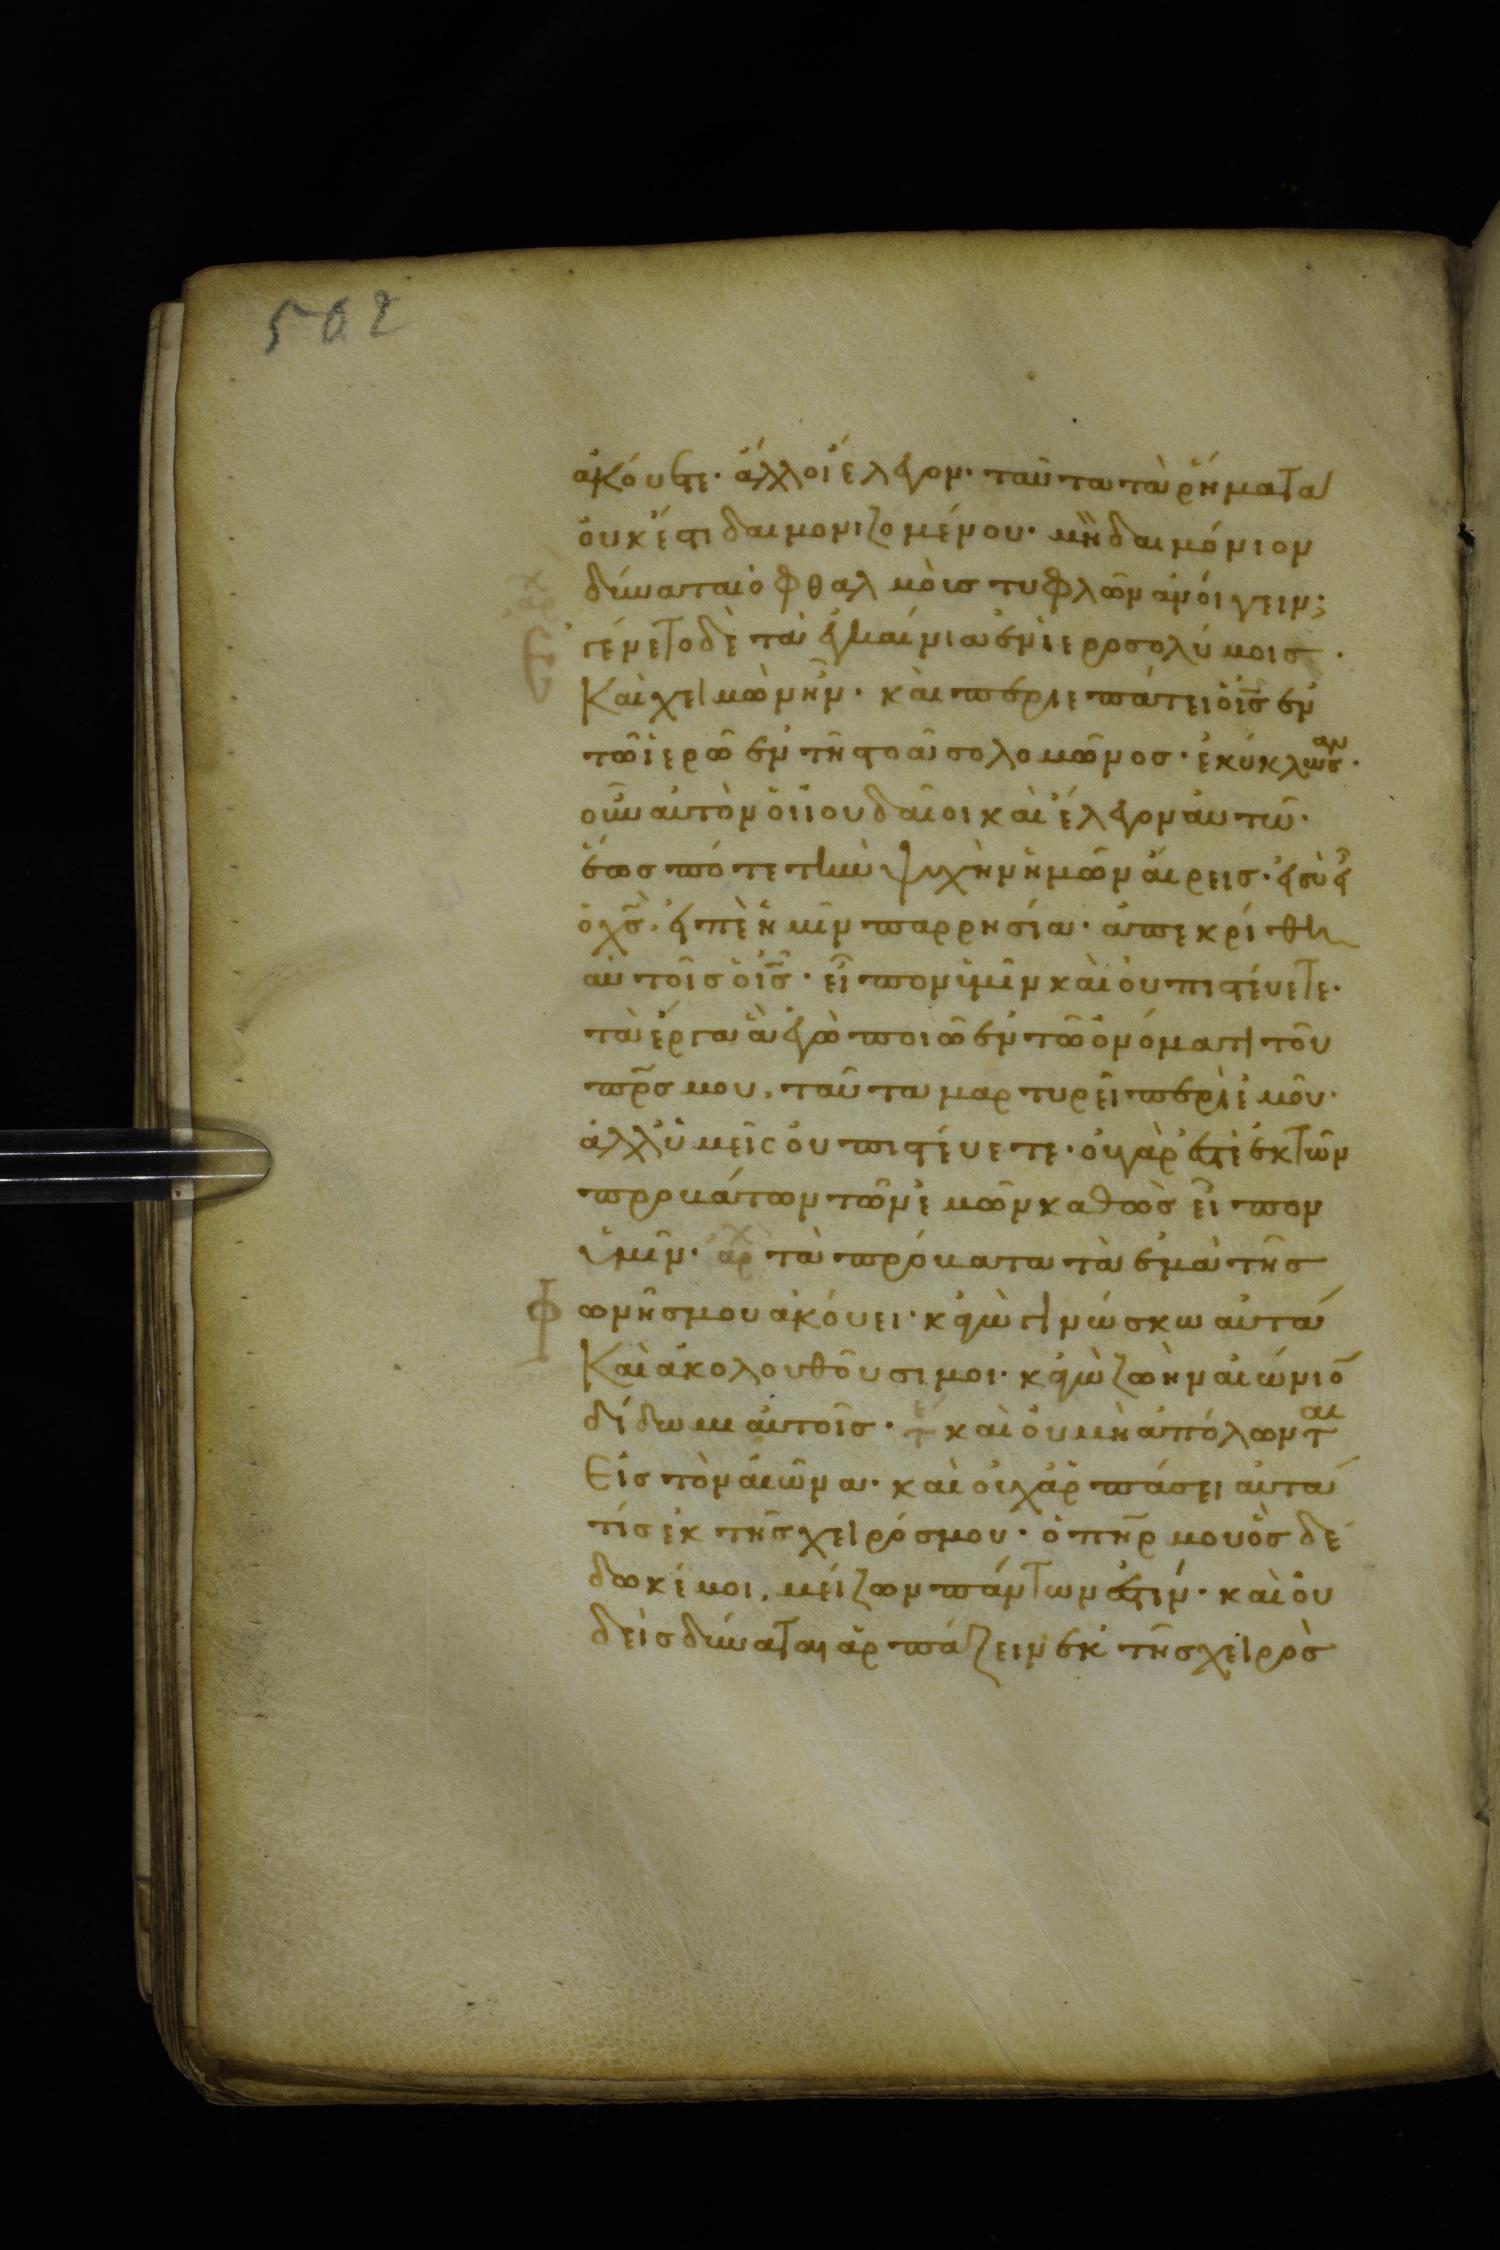 502
ἀκούετε· ἄλλοι ἔλεγον· ταῦτα τὰ ῥήματα
οὐκ ἔστι δαιμονιζομένου· μὴ δαιμόνιον
δύναται ὀφθαλμοὺς τυφλῶν ἀνοίγειν;
αρχ
Ἐγένετο δὲ τὰ ἐγκαίνια ἐν ἱεροσολύμοις·
Καὶ χειμὼν ἦν· καὶ περιεπάτει ὁ ις ἐν
τῶ ἱερῶ ἐν τῆ στοᾶ σολομῶνος· ἐκύκλωσαν
οὖν αὐτὸν οἱ ἰουδαῖοι καὶ ἔλεγον αὐτῶ·
ἕως πότε τὴν ψυχὴν ἡμῶν αἴρεις· εἰ σὺ εἶ
ὁ χς, εἰπὲ ἡμῖν παρρησία· ἀπεκρίθη
αὐτοῖς ὁ ις· εἶπον ὑμῖν καὶ οὐ πιστεύετε·
τὰ ἔργα ἃ ἐγὼ ποιῶ ἐν τῶ ὀνόματι τοῦ
πρς μου, ταῦτα μαρτυρεῖ περὶ ἐμοῦ·
ἀλλ ὑμεῖς οὐ πιστεύετε· οὐ γάρ ἐστὲ ἐκ τῶν
προβάτων τῶν ἐμῶν καθὼς εἶπον
ὑμῖν· αρχ τὰ πρόβατα τὰ ἐμὰ τῆς
φωνῆς μου ἀκούει· κἀγὼ γινώσκω αὐτά
Καὶ ἀκολουθοῦσί μοι· κἀγὼ ζωὴν αἰώνιο̄
δίδωμι αὐτοῖς· τε καὶ οὐ μὴ ἀπόλωνται
Εἰς τὸν αἰῶνα· καὶ οὐχ ἁρπάσει αὐτά
τὶς ἐκ τῆς χειρός μου· ὁ πηρ μου ὃς δέ
δωκέ μοι, μείζων πάντων ἐστίν· καὶ οὐ
δεὶς δύναται ἁρπάζειν ἐκ τῆς χειρὸς